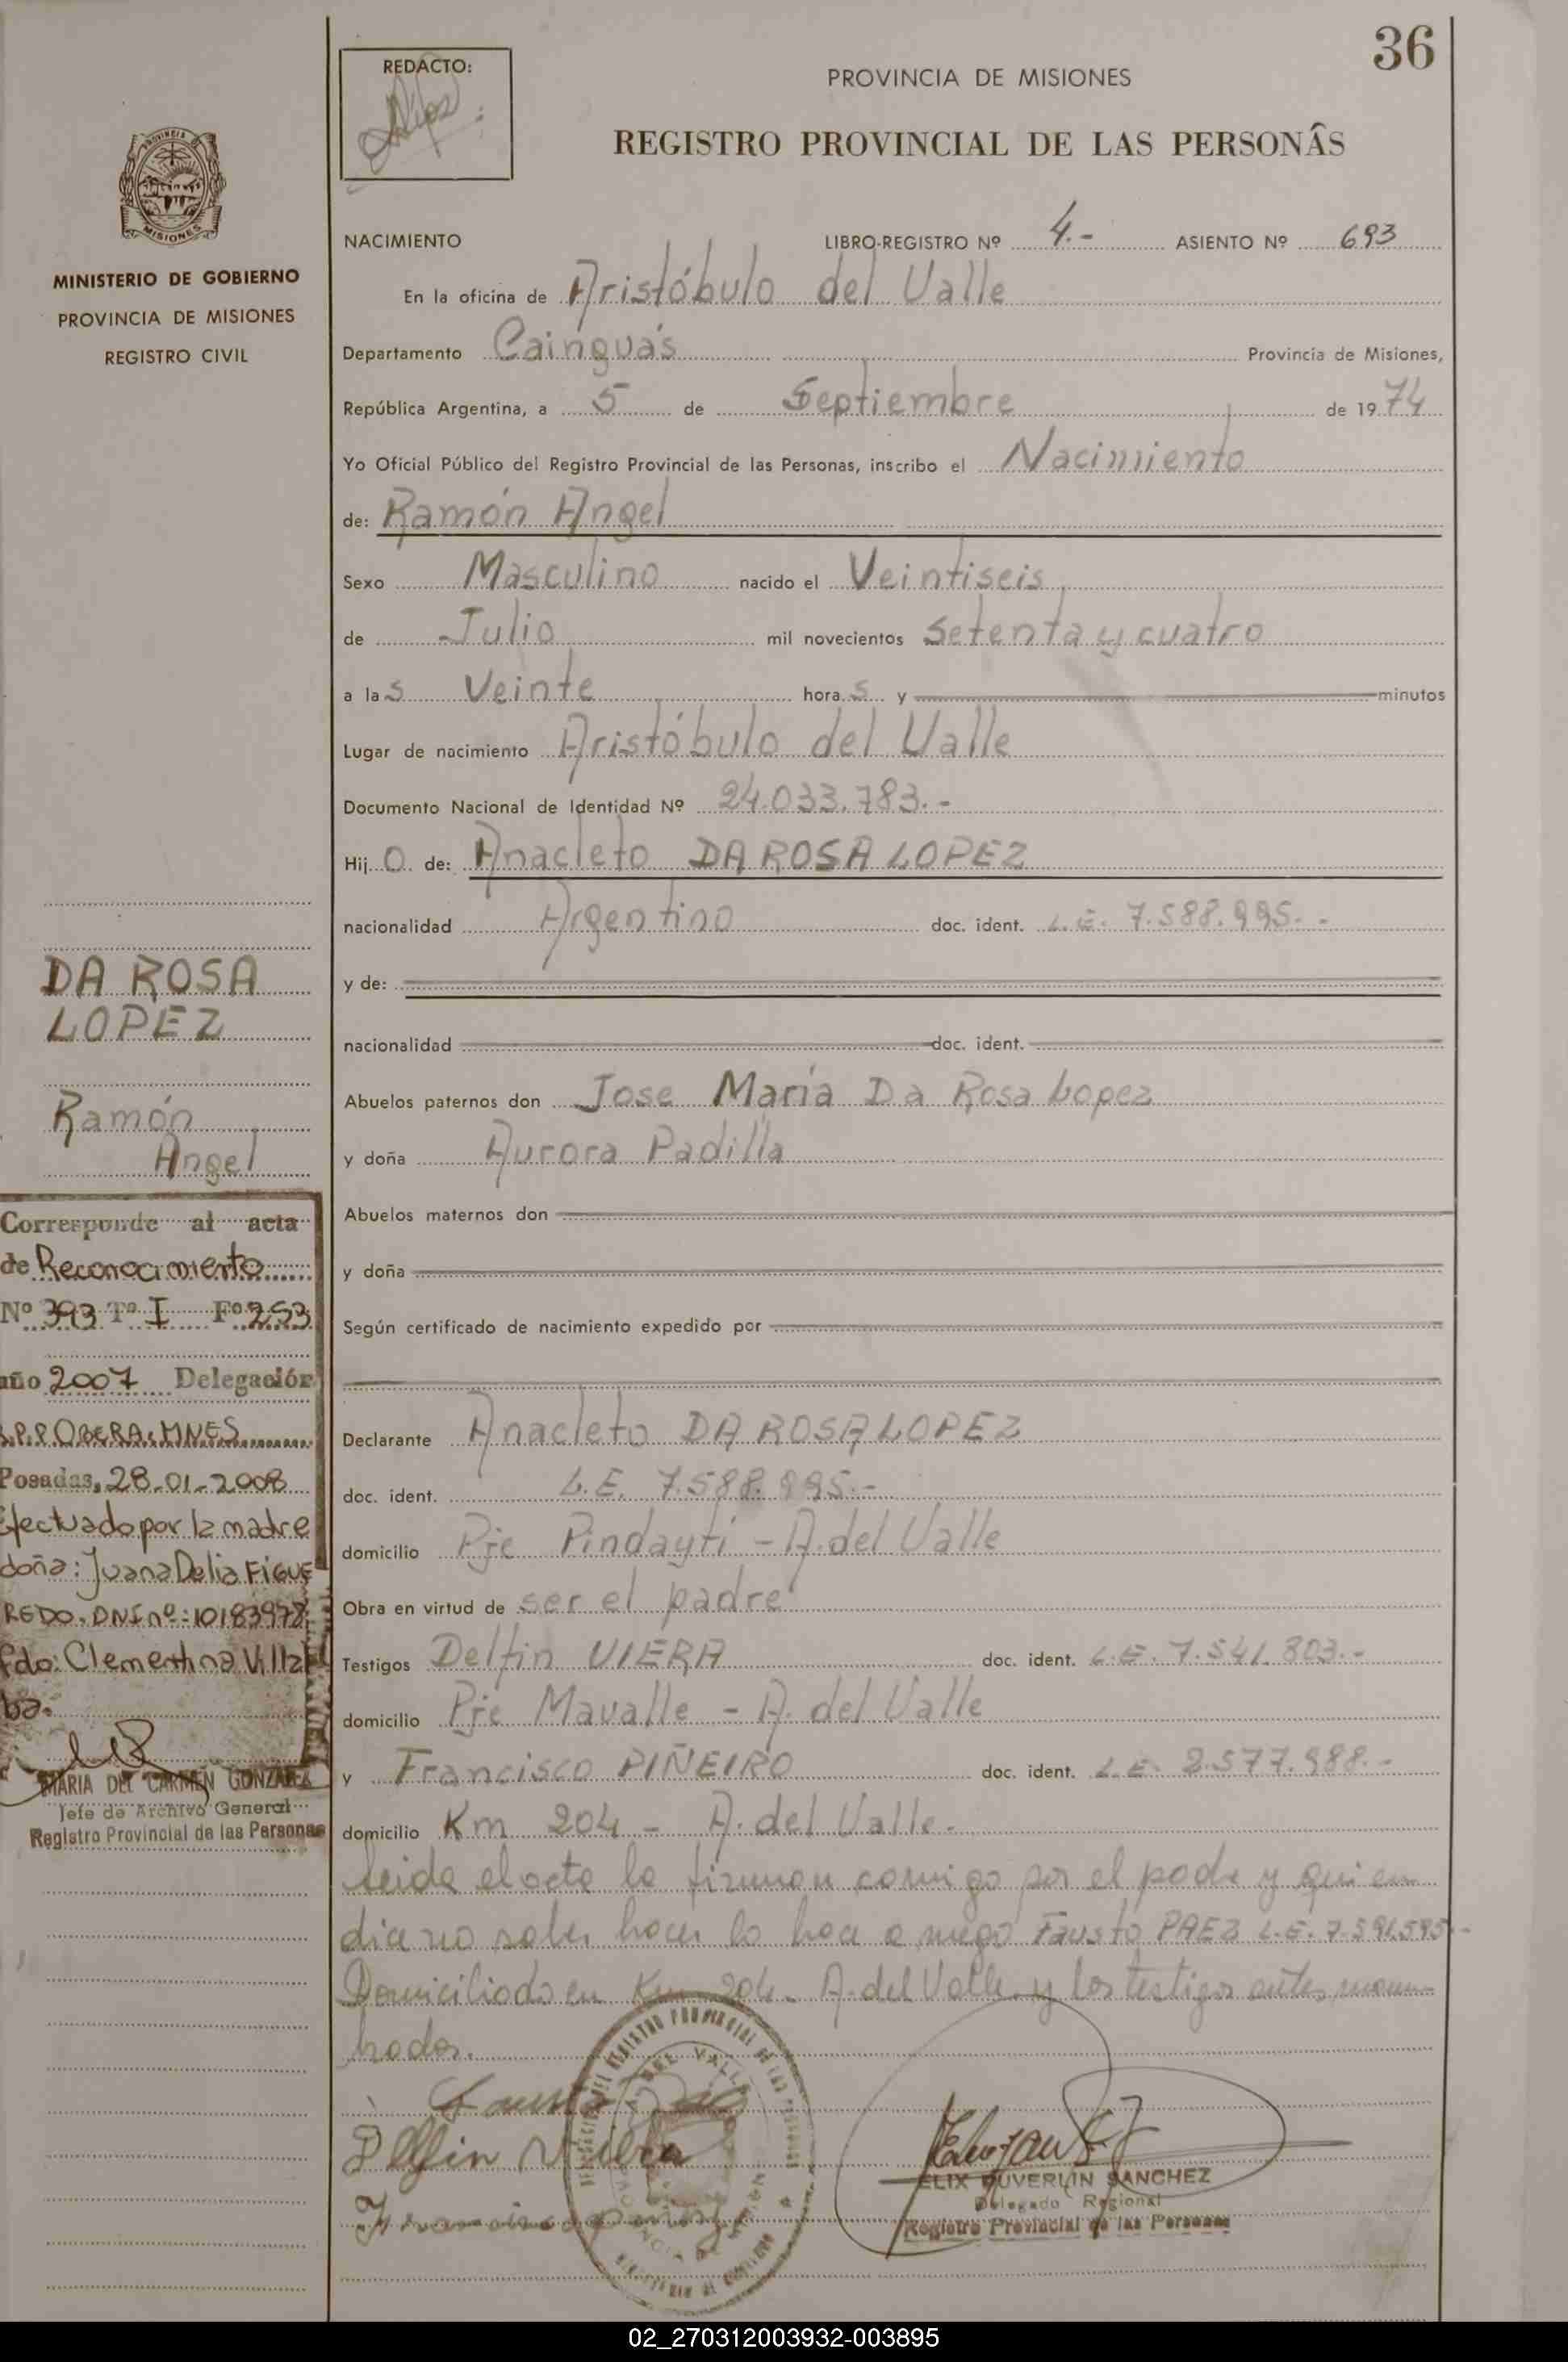 36
REDACTO:
PROVINCIA DE MISIONES
REGISTRO PROVINCIAL DE LAS PERSONAS
MISIONES
MINISTERIO DE GOBIERNO
PROVINCIA DE MISIONES
REGISTRO CIVIL
NACIMIENTO LIBRO-REGISTRO Nº 4.- ASIENTO Nº 693
En la oficina de Aristóbulo del Valle
Departamento Cainguás Provincia de Misiones,
República Argentina, a 5 de Septiembre de 1974
Yo Oficial Público del Registro Provincial de las Personas, inscribo el Nacimiento
de: Ramón Angel
Sexo Masculino nacido el Veintiseis
de Julio mil novecientos setenta y cuatro
a las Veinte horas y minutos
Lugar de nacimiento Aristóbulo del Valle
Documento Nacional de Identidad Nº 24.033.783.-
Hijo de: Anacleto DA ROSA LOPEZ
nacionalidad Argentino doc. ident. L.E. 7.588.995.-
y de:
nacionalidad doc. ident.
Abuelos paternos don Jose María Da Rosa Lopez
y doña Aurora Padilla
Abuelos maternos don
y doña
Según certificado de nacimiento expedido por
Declarante Anacleto DA ROSA LOPEZ
doc. ident. L.E. 7.588.995.-
domicilio Pje Pindaytí - A. del Valle
Obra en virtud de ser el padre
Testigos Delfin VIERA doc. ident. L.E. 7.541.803.-
domicilio Pje Mavalle - A. del Valle
y Francisco PIÑEIRO doc. ident. L.E. 2.577.988.-
domicilio Km 204 - A. del Valle.-
Leida el acta la firman conmigo por el padre y quien
dice no saber hacer lo hace a ruego Fausto PAEZ L.E. 7.591.595.-
Domiciliado en Km 204 - A. del Valle y los testigos antes mencio-
nados.
Delfin Viera
ELIX DUVERLIN SANCHEZ
Delegado Regional
Registro Provincial de las Personas
DA ROSA
LOPEZ
Ramón
Angel
Corresponde al acta
de Reconocimiento
Nº 393 Tº I Fº 253
año 2007 Delegación
R.P.P. OBERA, MNES
Posadas, 28-01-2008
Efectuado por la madre
doña: Juana Delia FIGUE
REDO, DNI nº: 10183978
Fdo: Clementina Villal
ba.
MARIA DEL CARMEN GONZALEZ
Jefe de Archivo General
Registro Provincial de las Personas
02_270312003932-003895